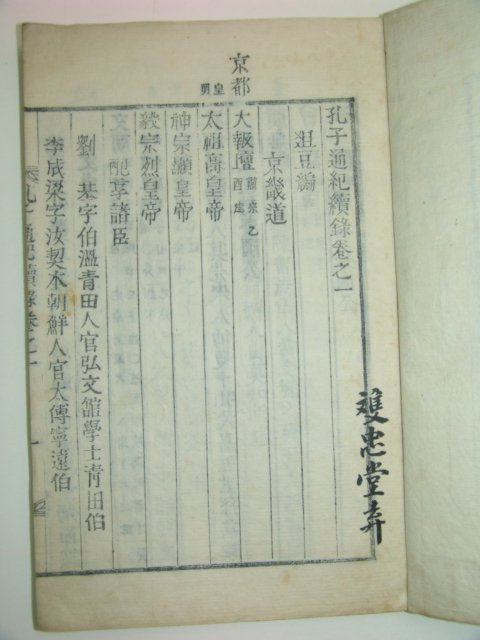 京都
皇明
孔子通紀續錄卷之一
俎豆編
京畿道
大報壇 肅宗乙酉建
太祖高皇帝
神宗顯皇帝
毅宗烈皇帝
配享諸臣
劉 基字伯溫青田人官弘文館學士青田伯
李成梁字汝契本朝鮮人官太傅寧遠伯
孔子通紀續錄卷之一
一
雙忠堂弆